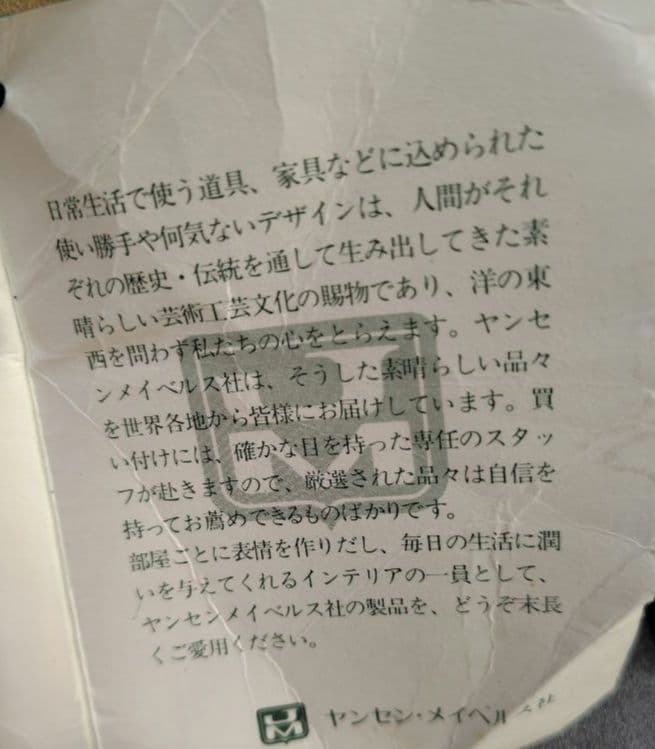 日常生活で使う道具、家具などに込められた
使い勝手や何気ないデザインは、人間がそれ
ぞれの歴史・伝統を通して生み出してきた素
晴らしい芸術工芸文化の賜物であり、洋の東
西を問わず私たちの心をとらえます。ヤンセ
ンメイベルス社は、そうした素晴らしい品々
を世界各地から皆様にお届けしています。買
い付けには、確かな目を持った専任のスタッ
フが赴きますので、厳選された品々は自信を
持ってお薦めできるものばかりです。
部屋ごとに表情を作りだし、毎日の生活に潤
いを与えてくれるインテリアの一員として、
ヤンセンメイベルス社の製品を、どうぞ末長
くご愛用ください。
JM ヤンセン・メイベル